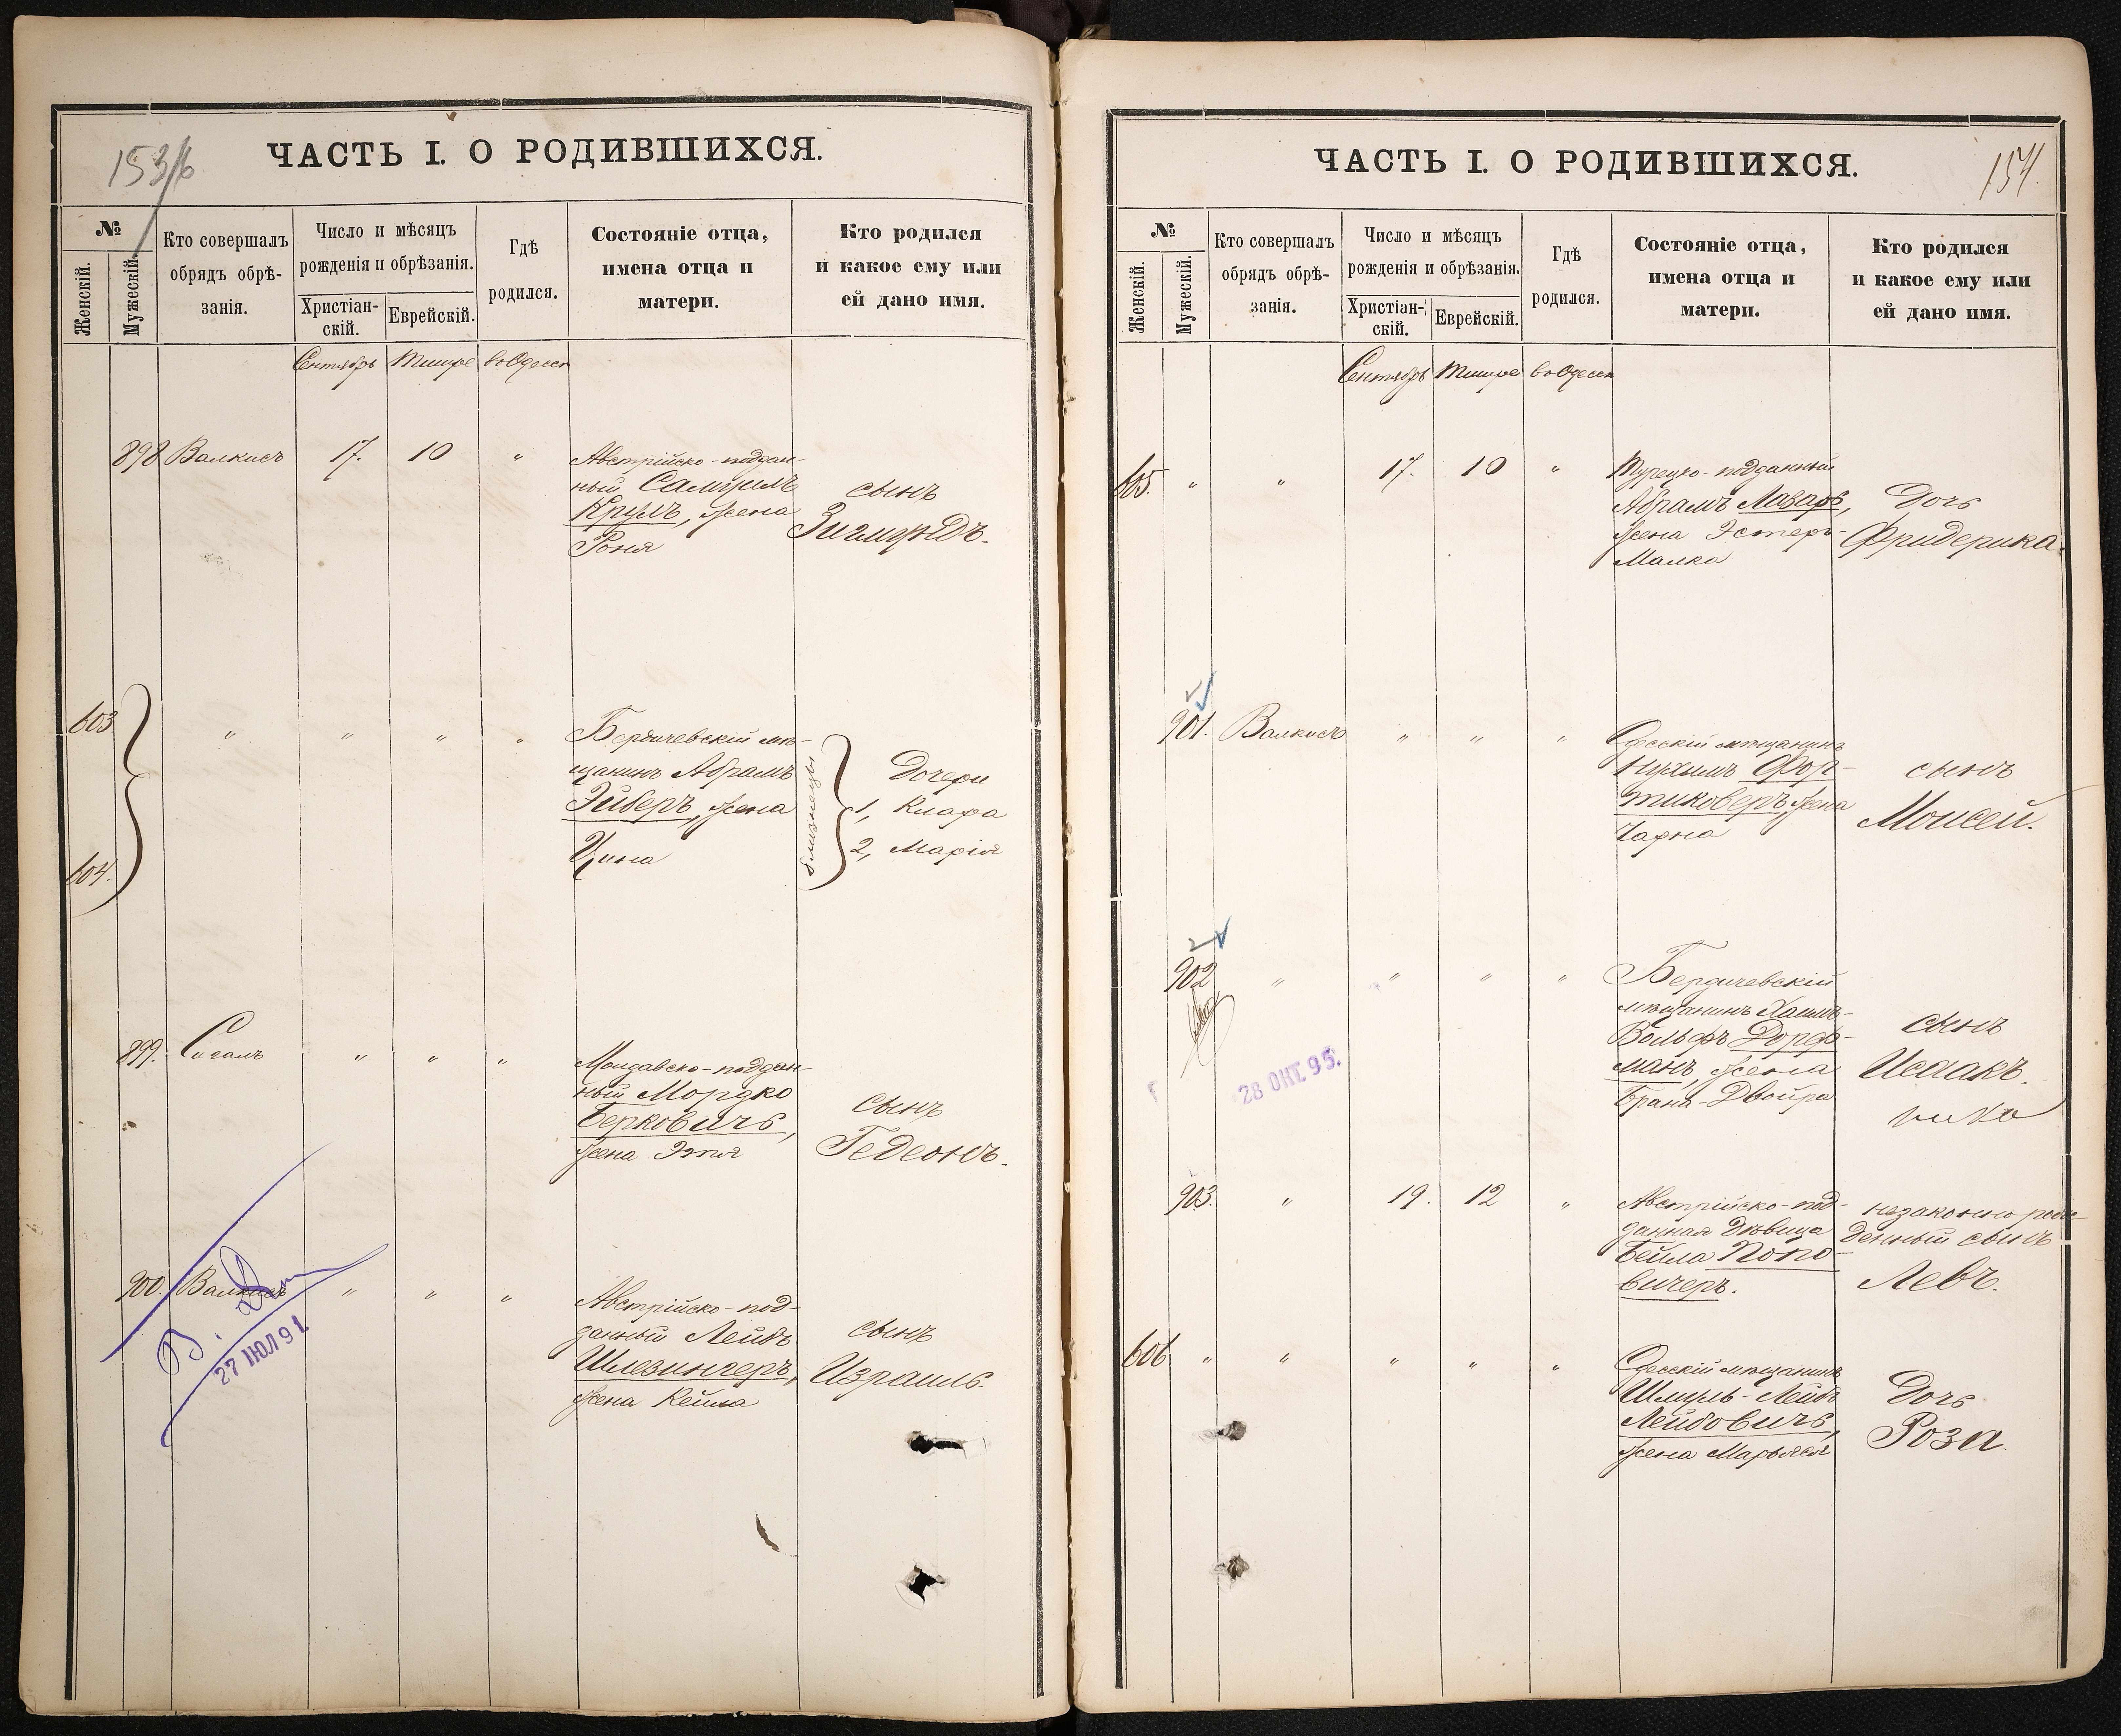 153/б
ЧАСТЬ I. О РОДИВШИХСЯ.
№
Женскій.
Мужескій.
Кто совершалъ
обрядъ обрѣ-
занія.
Число и мѣсяцъ
рожденія и обрѣзанія.
Христіан-
скій.
Еврейскій.
Гдѣ
родился.
Состояніе отца,
имена отца и
матери.
Кто родился
и какое ему или
ей дано имя.
Сентябрь Тишре въ Одессѣ
898 Валкисъ 17. 10 "
Австрійско-поддан-
ный Самуилъ
Круль, жена
Роня
сынъ
Зигмундъ.
603
604.
" " " "
Бердичевскій мѣ-
щанинъ Абрамъ
Эйберъ, жена
Цина
близнецы
Дочери
1, Клара
2, Марія
899. Сигалъ " " "
Молдавско-поддан-
ный Мордко
Берковичъ,
жена Этля
сынъ
Гедеонъ.
900. Валкисъ " " "
27 ИЮЛ 91.
Австрійско-под-
данный Лейбъ
Шлезингеръ,
жена Кейла
сынъ
Израиль.
154.
ЧАСТЬ I. О РОДИВШИХСЯ.
№
Женскій.
Мужескій.
Кто совершалъ
обрядъ обрѣ-
занія.
Число и мѣсяцъ
рожденія и обрѣзанія.
Христіан-
скій.
Еврейскій.
Гдѣ
родился.
Состояніе отца,
имена отца и
матери.
Кто родился
и какое ему или
ей дано имя.
Сентябрь Тишре въ Одессѣ
605. " " 17. 10 "
Турецко-подданный
Абрамъ Лазаръ,
жена Эстеръ-
Малка
Дочь
Фридерика.
901. Валкисъ " " "
Одесскій мѣщанинъ
Нухимъ Фор-
тиковеръ, жена
Чарна
сынъ
Моисей.
902 " " " "
28 ОКТ. 95.
Бердичевскій
мѣщанинъ Хаимъ-
Вольфъ Дорф-
манъ, жена
Брана-Двойра
сынъ
Исаакъ.
903. " 19. 12 "
Австрійско-под-
данная дѣвица
Бейла Попо-
вичеръ.
незаконно рож-
денный сынъ
Левъ.
606. " " " " "
Одесскій мѣщанинъ
Шмуль-Лейбъ
Лейбовичъ,
жена Марьяся
Дочь
Роза.